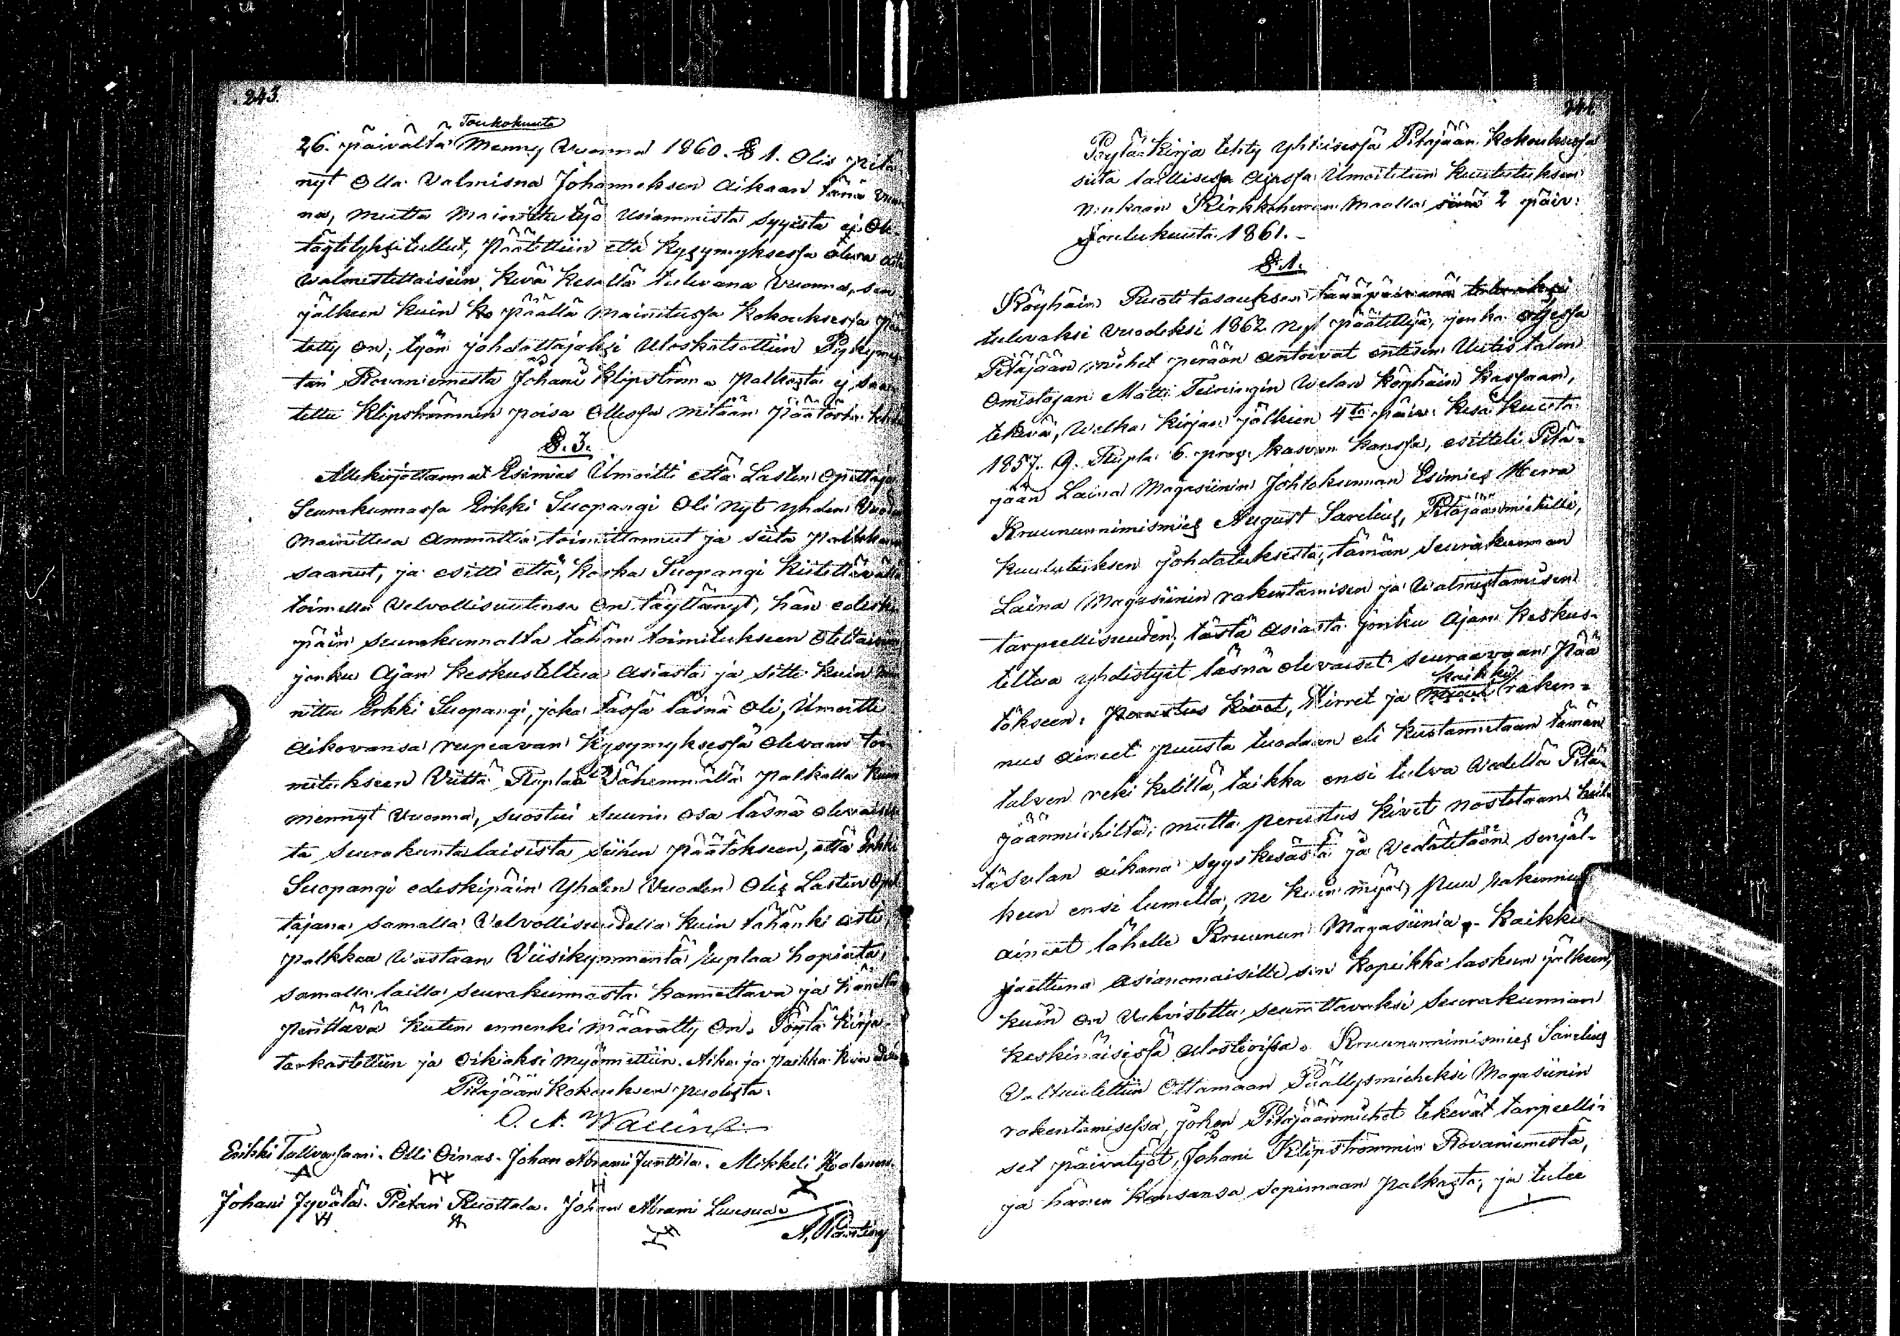 243.
Toukokuuta
26. päivältä Menny Vuonna 1860. § 1. Olis pitä-
nyt Olla Valmisna Johanneksen Aikaan tänä
na, mutta Mainittu työ Usiammista Syyistä ej Ole
täytetyksi tullut, päätettiin että kysymyksessä oleva
Walmistettaisiin, kevä kesällä tulevana Vuonna, sen
jälkeen kuin ko päällä mainitussa Kokouksessa pää
tetty on; työn johdattajaksi Uloskatsottiin
tari Rovaniemestä Johani Klipström palkasta ej saa
tettu Klipströmmin poisa Ollessa mitään päätöstä
§. 3.
Allekirjottannut Esimies Ilmoitti että Lasten Opettaja
Seurakunnassa Erkki Suopangi Oli nyt yhden Vuoden
Mainittua Ammattia toimittannut ja siitä palkkan
saanut, ja esitti että, koska Suopangi kiitettävällä
toimella Velvollisuutensa on täyttänyt, hän edeski
päin seurakunnalta tähän toimitukseen Otettaisiin
jonku Ajan keskusteltua Asiasta ja sitte kuin mai
nittu Erkki Suopangi, joka tässä läsnä Oli, Ilmoitti
Aikovansa rupeavan Kysymyksessä Olevaan toi
mitukseen Viittä Ruplaa Vähemmällä palkalla kuin
mennyt Vuonna, suostui Suurin Osa läsnä Olevaisis
ta Seurakuntalaisista siihen päätökseen, että Erkki
Suopangi edeskipäin Yhden Vuoden Olis Lasten Opet
tajana samalla Velvollisuudella kuin tähänki asti,
palkkaa Wastaan Viisikymmentä Ruplaa hopiata,
samalla lailla seurakunnasta kannettava ja häneltä
perittävä kuten ennenki määrätty On. Pöytä kirja
tarkastettiin ja Oikiaksi myönnettiin. Aika ja paikka kuin edellä
Pitäjään Kokouksen puolesta.
O. A. Wallin
Erikki Tallvasaari. Olli Oinas. Johan Abrami Junttila. Mikkeli
Johani Jyvälä. Pietari Ruottala. Johan Abrami Luusua.
244.
Pöytäkirja tehty yhteisessä Pitäjään Kokouksessa
siitä laillisessa Ajassa Ilmoitetun Kuulutuksen
Mukaan Kirkkoherran Maalla 2 päiv:
Joulukuuta 1861.
§. 1.
Köyhäin Ruoti tasauksen
tulevaksi Vuodeksi 1862 nyt päätettyä, jonka Ohjessa
Pitäjään miehet perään antoivat entisen Uutis talon
Omistajan Matti Welan köyhäin kassaan,
tekevä, Welka kirjan jälkeen 4tä päiv: kesä kuuta
1857. 9. Rupla 6. pros: kasvun kanssa, esitteli Pitä-
jään Laina Magasiinin Johtokunnan Esimies Herra
Kruununnimismies August Sarelius, Pitäjäänmiehille,
kuulutuksen johdatuksesta, tämän Seurakunnan
Laina Magasiinin rakentamisen ja Walmistamisen
tarpeellisuuden; tästä Asiasta jonku Ajan keskus-
teltua yhdistyit läsnä olevaiset seuraavaan Pää
kaikki
tökseen: perustus kivet, Hirret ja raken-
nus aineet puusta tuodaan eli kustannetaan tämän
talven reki kelillä, taikka ensi tulva Vedellä Pitä-
jäänmiehiltä; mutta perustus kivet nostetaan
tä sulan aikana syys kesästä ja Vedätetään senjäl-
keen ensi lumella, ne kuin myös puu rakennus
aineet lähelle Kruunun Magasiinia - Kaikki
jaettuna asianomaisille sen kopeikka laskun jälkeen,
kuin on Vahvistettu seurattavaksi Seurakunnan
keskinäisissä ulosteoissa. Kruununnimismies Sarelius
Valtuutettiin Ottamaan Päällysmieheksi Magasiinin
rakentamisessa, johon Pitäjäänmiehet tekevät tarpeelli-
set päivätyöt, Johani Klipströmmin Rovaniemestä,
ja hänen kanssansa sopimaan palkasta; ja tulee